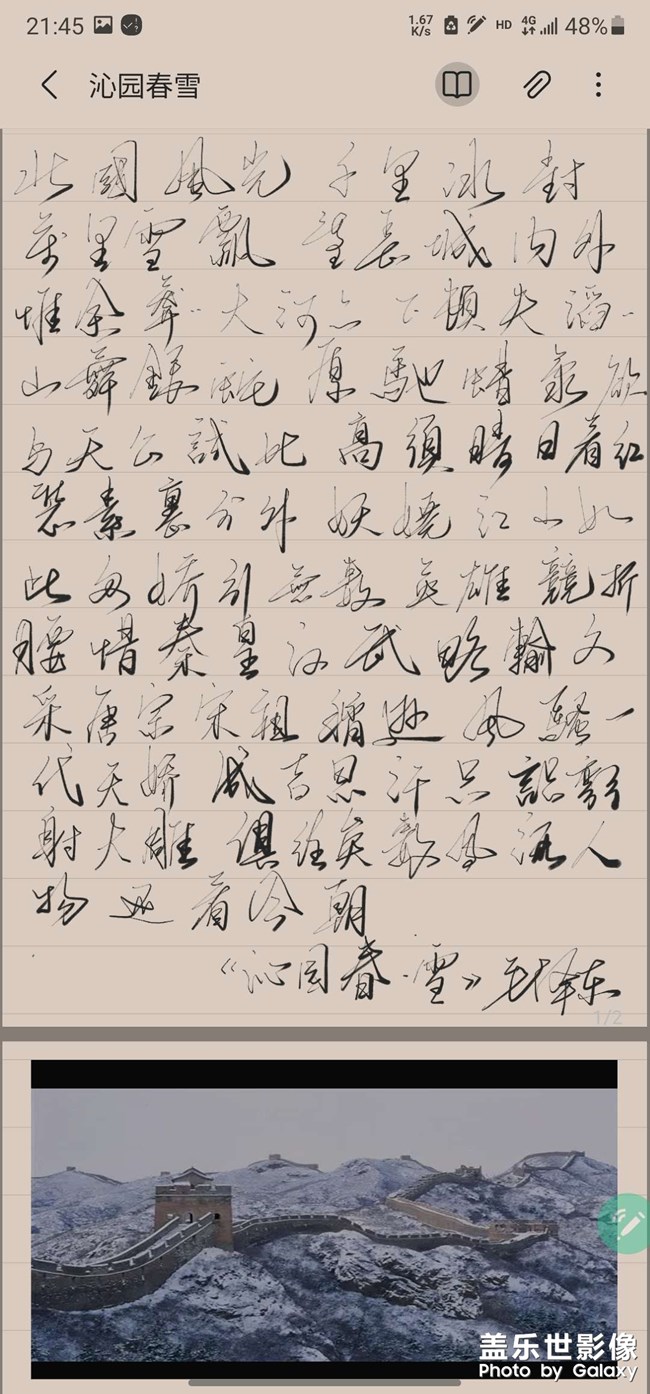 21:45 1.67 K/s HD 4G 48%
沁园春雪
北國風光 千里冰封
萬里雪飄 望長城内外
惟余莽‥大河上下頓失滔‥
山舞銀蛇 原馳蠟象欲
与天公試比高須晴日着红
裝素裹分外妖嬈江山如
此多嬌引無數英雄競折
腰惜秦皇汉武略輸文
采唐宗宋祖稍遜風騷一
代天嬌成吉思汗只識彎
射大雕俱往矣數風流人
物还看今朝
《沁园春·雪》毛泽东
1/2
盖乐世影像
Photo by Galaxy